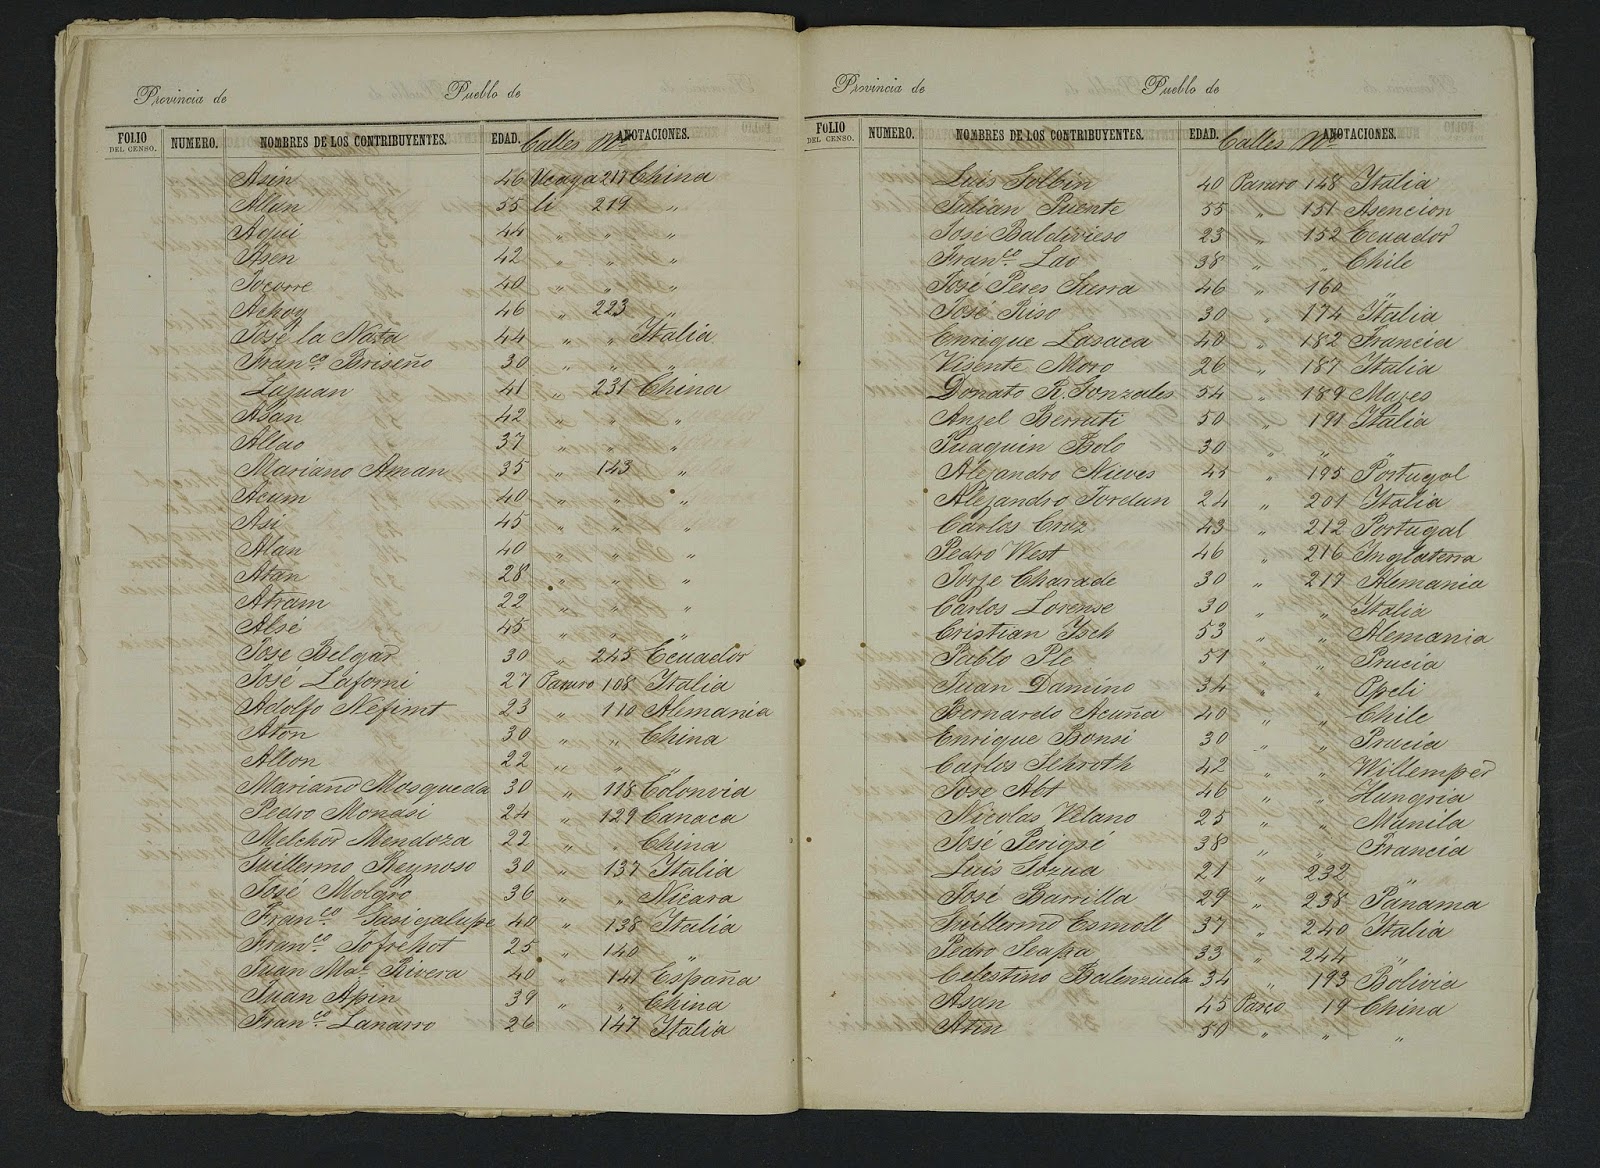 Provincia de Pueblo de
FOLIO DEL CENSO. NUMERO. NOMBRES DE LOS CONTRIBUYENTES. EDAD. Calles No ANOTACIONES.
Asin 46 Ucaya 217 China
Allun 55 li 219 "
Aqui 44 " " "
Asen 42 " " "
Jocorre 40 " " "
Achoy 46 " 223 "
José la Nata 44 " " Italia
Franco. Briseño 30 " " "
Laguan 41 " 231 China
Asan 42 " " "
Allao 37 " " "
Mariano Aman 35 " 143 "
Acum 40 " " "
Asi 45 " " "
Alan 40 " " "
Atan 28 " " "
Atram 22 " " "
Alsé 45 " " "
Jose Belgar 30 " 245 Ecuador
José Laforni 27 Paruro 108 Italia
Adolfo Nefimt 23 " 110 Alemania
Aton 30 " " China
Allon 22 " " "
Mariano Mosqueda 30 " 118 Colonvia
Pedro Monasi 24 " 129 Canaca
Melchor Mendoza 22 " " China
Guillermo Reynoso 30 " 137 Italia
José Molgro 36 " " Nicara
Franco. 40 " 138 Italia
Franco. Jofrehot 25 " 140 "
Juan Mar. Rivera 40 " 141 España
Juan Apin 39 " " China
Franco. Lanarro 26 147 Italia
Provincia de Pueblo de
FOLIO DEL CENSO. NUMERO. NOMBRES DE LOS CONTRIBUYENTES. EDAD. Calles No ANOTACIONES.
Luis Solbin 40 Paruro 148 Italia
Julian Puente 55 " 151 Asencion
José Baldivieso 23 " 152 Ecuador
Franco. Lao 38 " " Chile
José Peres Surra 46 " 160 "
José Riso 30 " 174 Italia
Enrique Lasaca 40 " 182 Francia
Visente Moro 26 " 187 Italia
Donato R. Gonzales 54 " 189 Mares
Anzel Berruti 50 " 191 Italia
Juaquin Bolo 30 " " "
Alejandro Nieves 45 " 195 Portugol
Alejandro Jordun 24 " 201 Italia
Carlos Cruz 43 " 212 Portugal
Pedro West 46 " 216 Inglaterra
Jorje Charade 30 " 217 Alemania
Carlos Lorense 30 " " Italia
Cristian Isch 53 " " Alemania
Pablo Ple 51 " " Prucia
Juan Damino 34 " " Opeli
Bernardo Acuña 40 " " Chile
Enrique Bonsi 30 " " Prucia
Carlos Schroth 42 " " Willemper
Jose Abt 46 " " Hungria
Nicolas Velano 25 " " Manila
José Perigsé 38 " " Francia
Luis Sozua 21 " 232 "
José Barrilla 29 " 238 Panama
Guillermo Esmoll 37 " 240 Italia
Pedro Seapa 33 " 244 "
Celestino Balenzuela 34 " 193 Bolivia
Asan 45 Pasco 19 China
Aten 50 " " "